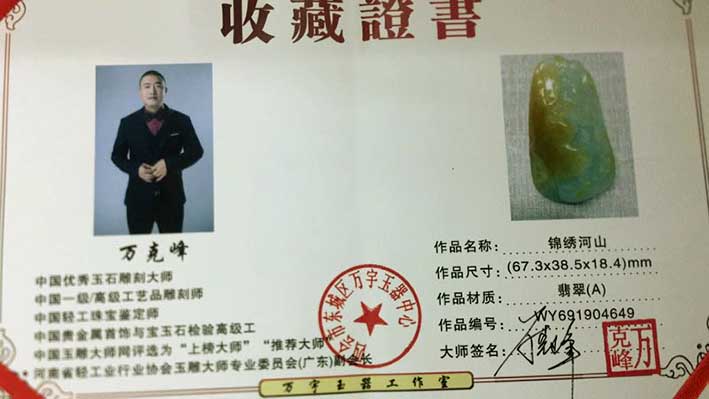 收藏證書
万克峰
中国优秀玉石雕刻大师
中国一级/高级工艺品雕刻师
中国轻工珠宝鉴定师
中国贵金属首饰与宝玉石检验高级工
中国玉雕大师网评选为“上榜大师”“推荐大师”
河南省轻工业行业协会玉雕大师专业委员会(广东)副会长
会市东城区万宇玉器中心
作品名称： 锦绣河山
作品尺寸：(67.3x38.5x18.4)mm
作品材质： 翡翠(A)
作品编号： WY691904649
大师签名：
万克峰
万宇玉器工作室